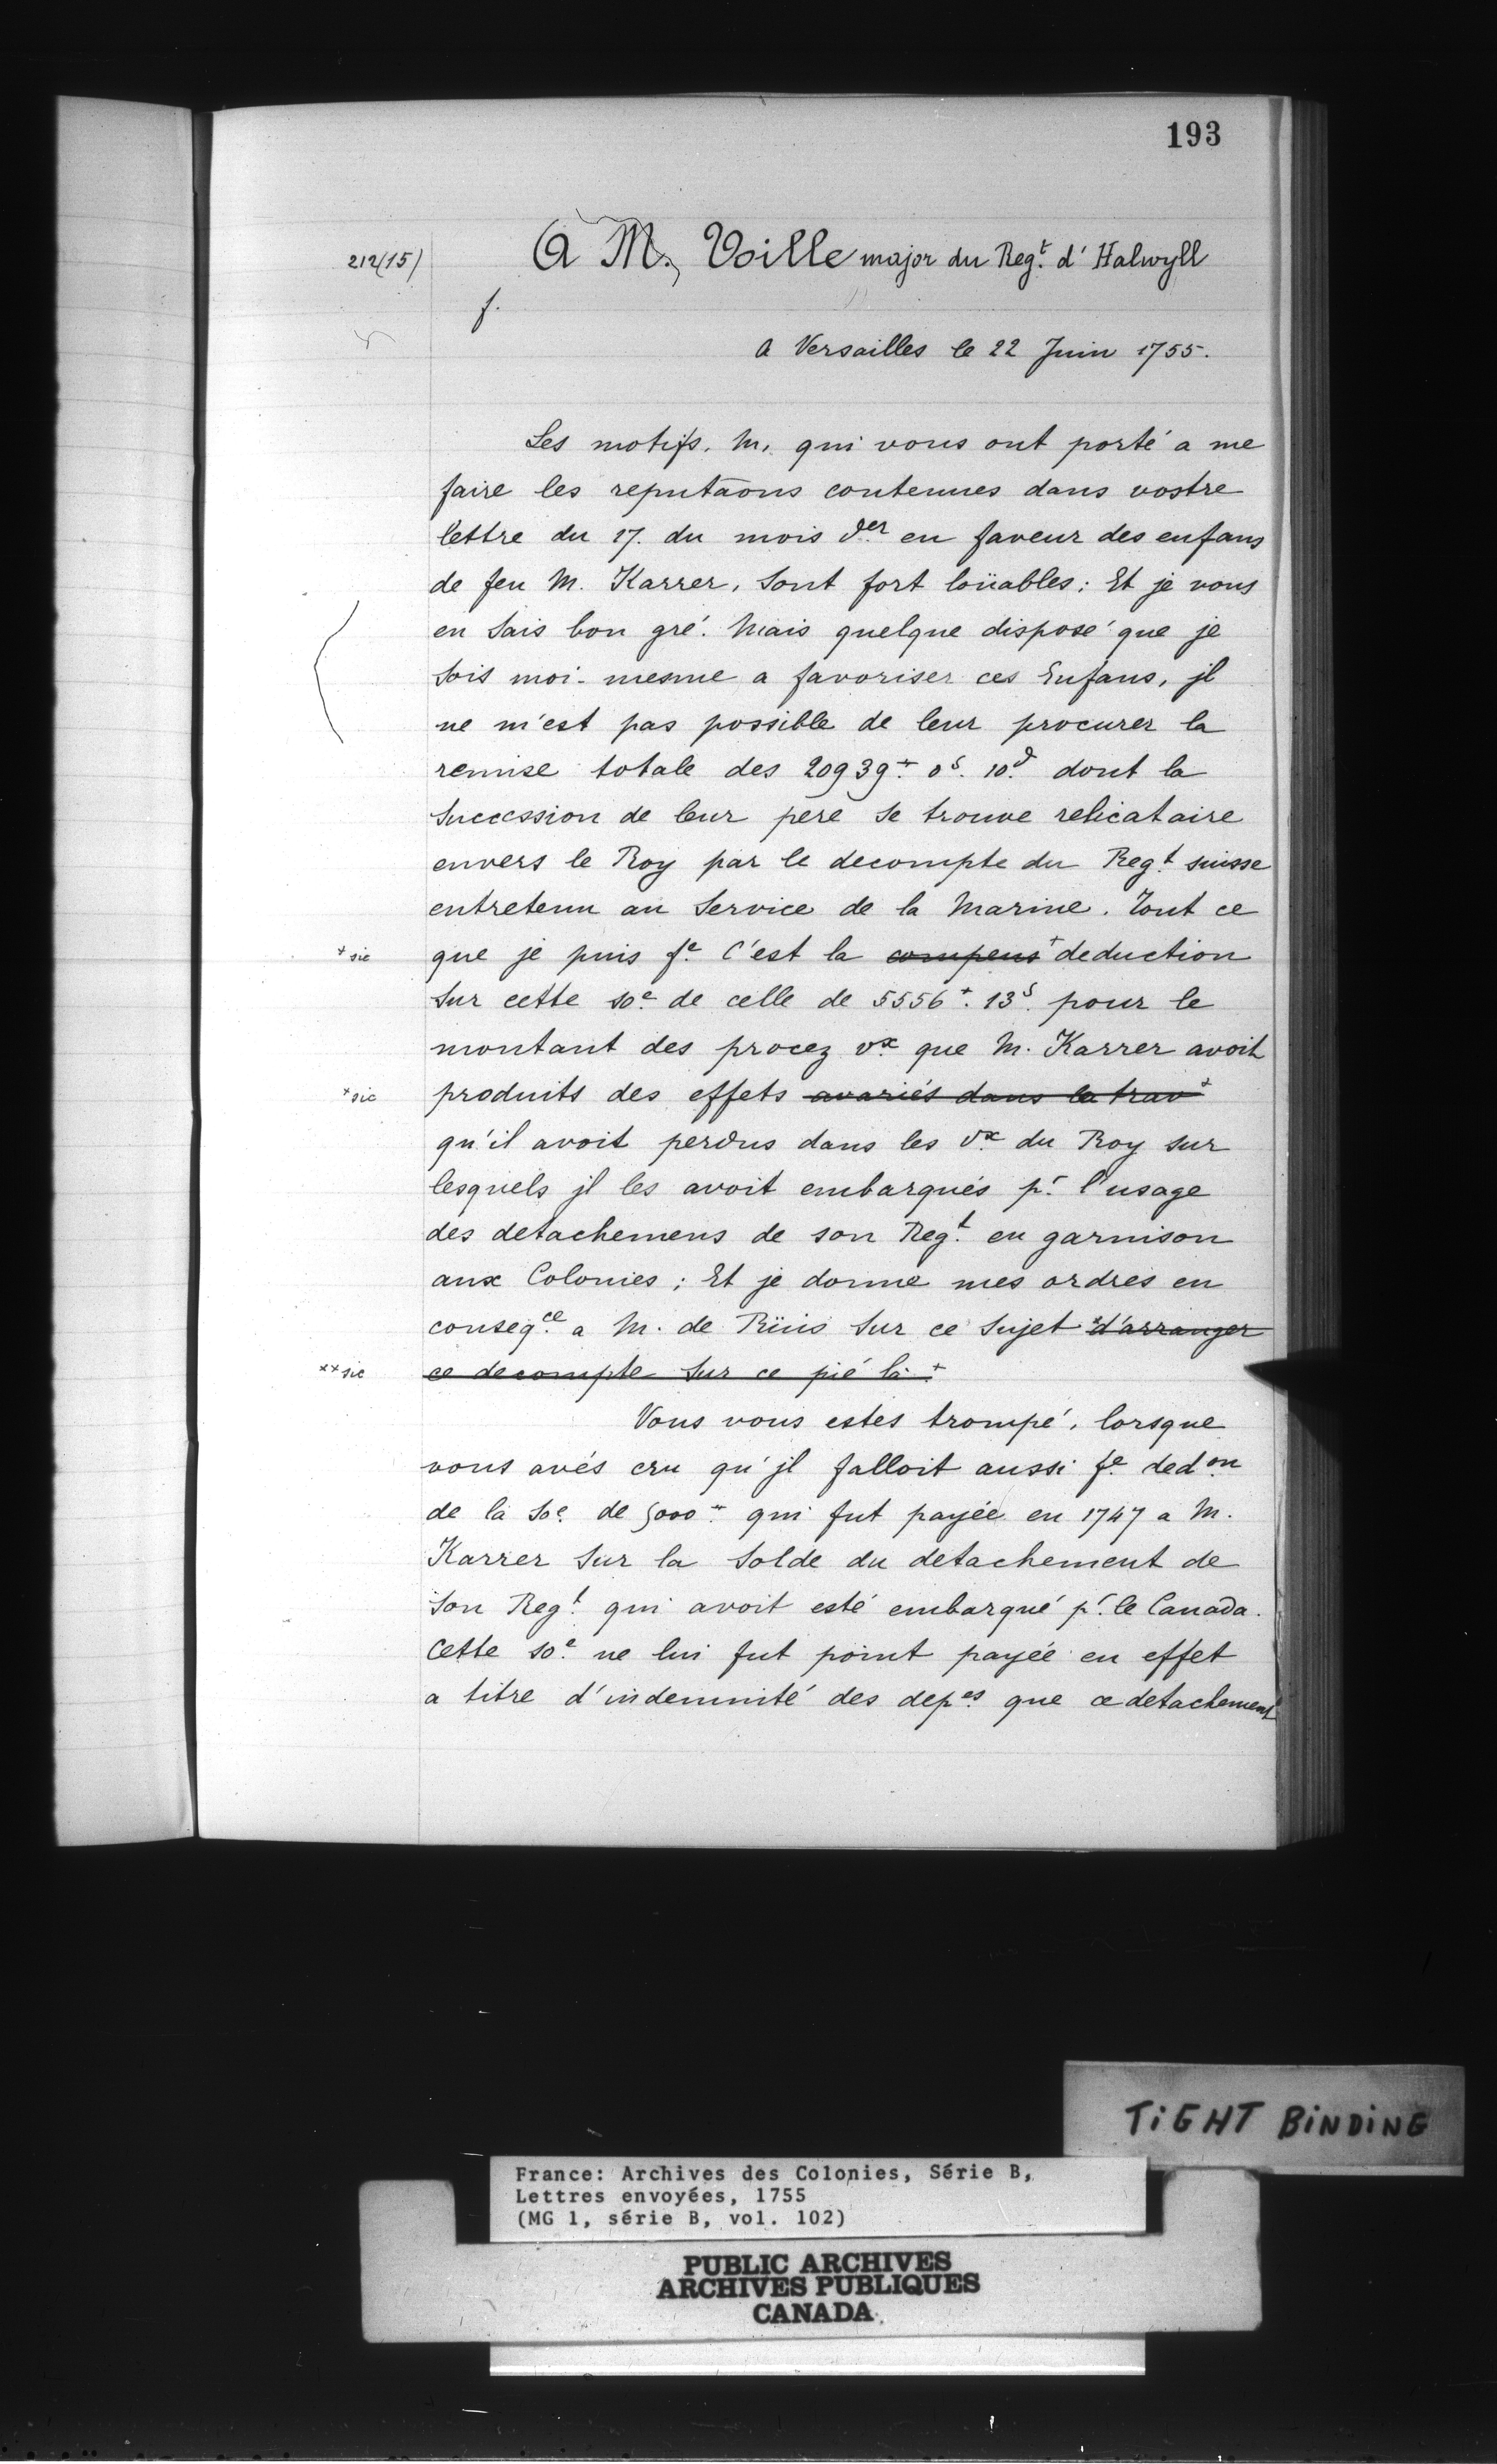 193
212(15)
A M. Voille major du Reg.t d'Halwyll
f.
A Versailles le 22 Juin 1755.
Les motifs, M, qui vous ont porté a me
faire les reputãons contenues dans vostre
lettre du 17. du mois der en faveur des enfans
de feu M. Karrer, Sont fort loüables: Et je vous
en Sais bon gré. Mais quelque disposé que je
Sois moi-mesme a favoriser ces Enfans, jl
ne m'est pas possible de leur procurer la
remise totale des 20939ᵗᵗ. 0s. 10d. dont la
Succession de leur pere Se trouve relicataire
envers le Roy par le decompte du Reg.t suisse
entretenu au Service de la Marine. Tout ce
+ sic
que je puis f.e C'est la compens+ deduction
Sur cette so.e de celle de 5556ᵗᵗ. 13s. pour le
montant des procez v.x que M. Karrer avoit
+ sic
produits des effets avariés dans la trav+
qu'il avoit perdus dans les v.x du Roy sur
lesquels jl les avoit embarqués p.r l'usage
des detachemens de son Reg.t en garnison
aux Colonies; Et je donne mes ordres en
conseq.ce a M. de Rüis Sur ce Sujet +d'arranger
++ sic
ce decompte Sur ce pié là+
Vous vous estes trompé, lorsque
vous avés cru qu'jl falloit aussi f.e ded.on
de la So.e de 5000ᵗᵗ. qui fut payée en 1747 a M.
Karrer Sur la Solde du detachement de
Son Reg.t qui avoit esté embarqué p.r le Canada.
Cette so.e ne lui fut point payée en effet
a titre d'indemnité des dep.es que ce detachement
TiGHT BiNDiNG
France: Archives des Colonies, Série B,
Lettres envoyées, 1755
(MG 1, série B, vol. 102)
PUBLIC ARCHIVES
ARCHIVES PUBLIQUES
CANADA